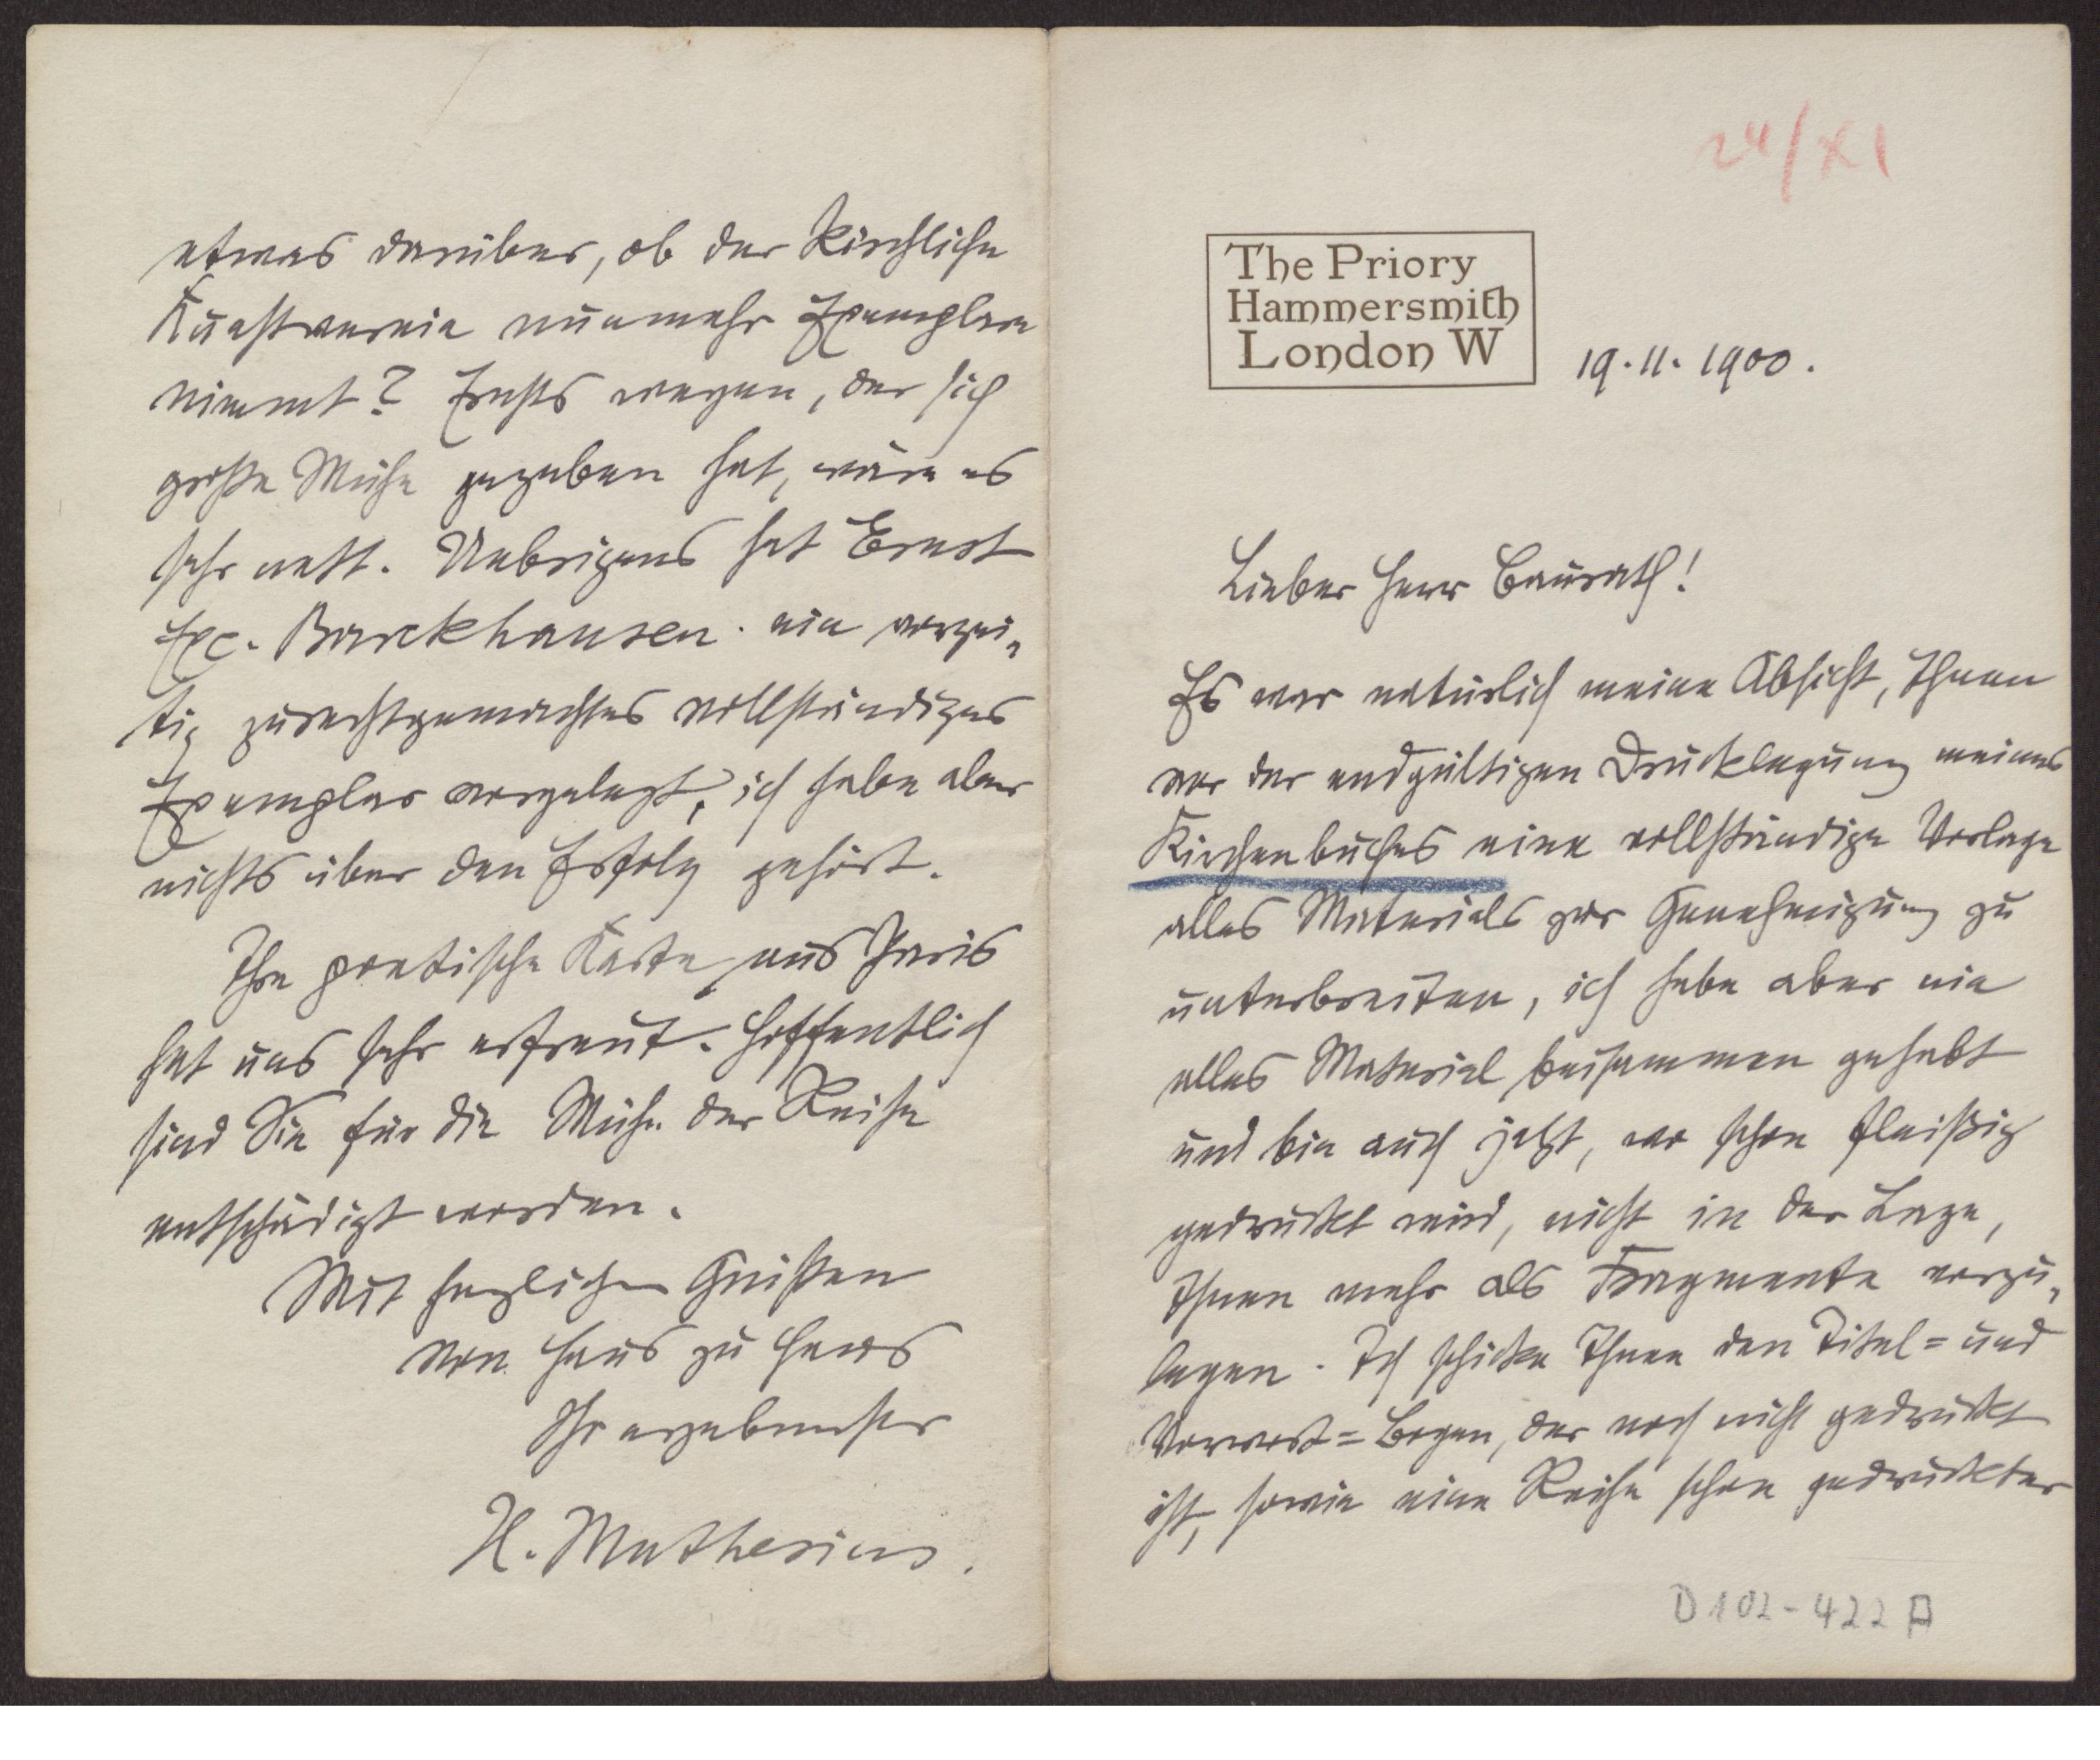 24/XI
The Priory
Hammersmith
London W
19.11.1900.
Lieber Herr Baurath!
Es war natürlich meine Absicht, Ihnen
vor der endgültigen Drucklegung meines
Kirchenbuches eine vollständige Vorlage
alles Materials zur Genehmigung zu
unterbreiten, ich habe aber nie
alles Material beisammen gehabt
und bin auch jetzt, wo schon fleißig
gedruckt wird, nicht in der Lage,
Ihnen mehr als Fragmente vorzu-
legen. Ich schicke Ihnen den Titel= und
Vorwort=Bogen, der noch nicht gedruckt
ist, sowie eine Reihe schon gedruckter
D 102-422 A
etwas darüber, ob der Kirchliche
Kunstverein nunmehr Exemplare
nimmt? Ernsts wegen, der sich
große Mühe gegeben hat, wäre es
sehr nett. Uebrigens hat Ernst
Exc. Barckhausen ein vorzei-
tig zurechtgemachtes vollständiges
Exemplar vorgelegt, ich habe aber
nichts über den Erfolg gehört.
Ihre poetische Karte aus Paris
hat uns sehr erfreut. Hoffentlich
sind Sie für die Mühe der Reise
entschädigt worden.
Mit herzlichen Grüßen
von Haus zu Haus
Ihr ergebenster
H. Muthesius.